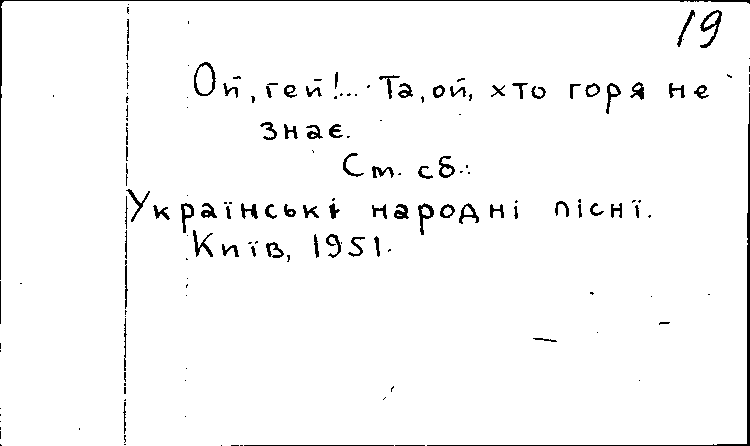 19
Ой, гей!... Та, ой, хто горя не
знає.
См. сб.:
Українські народні пісні.
Київ, 1951.